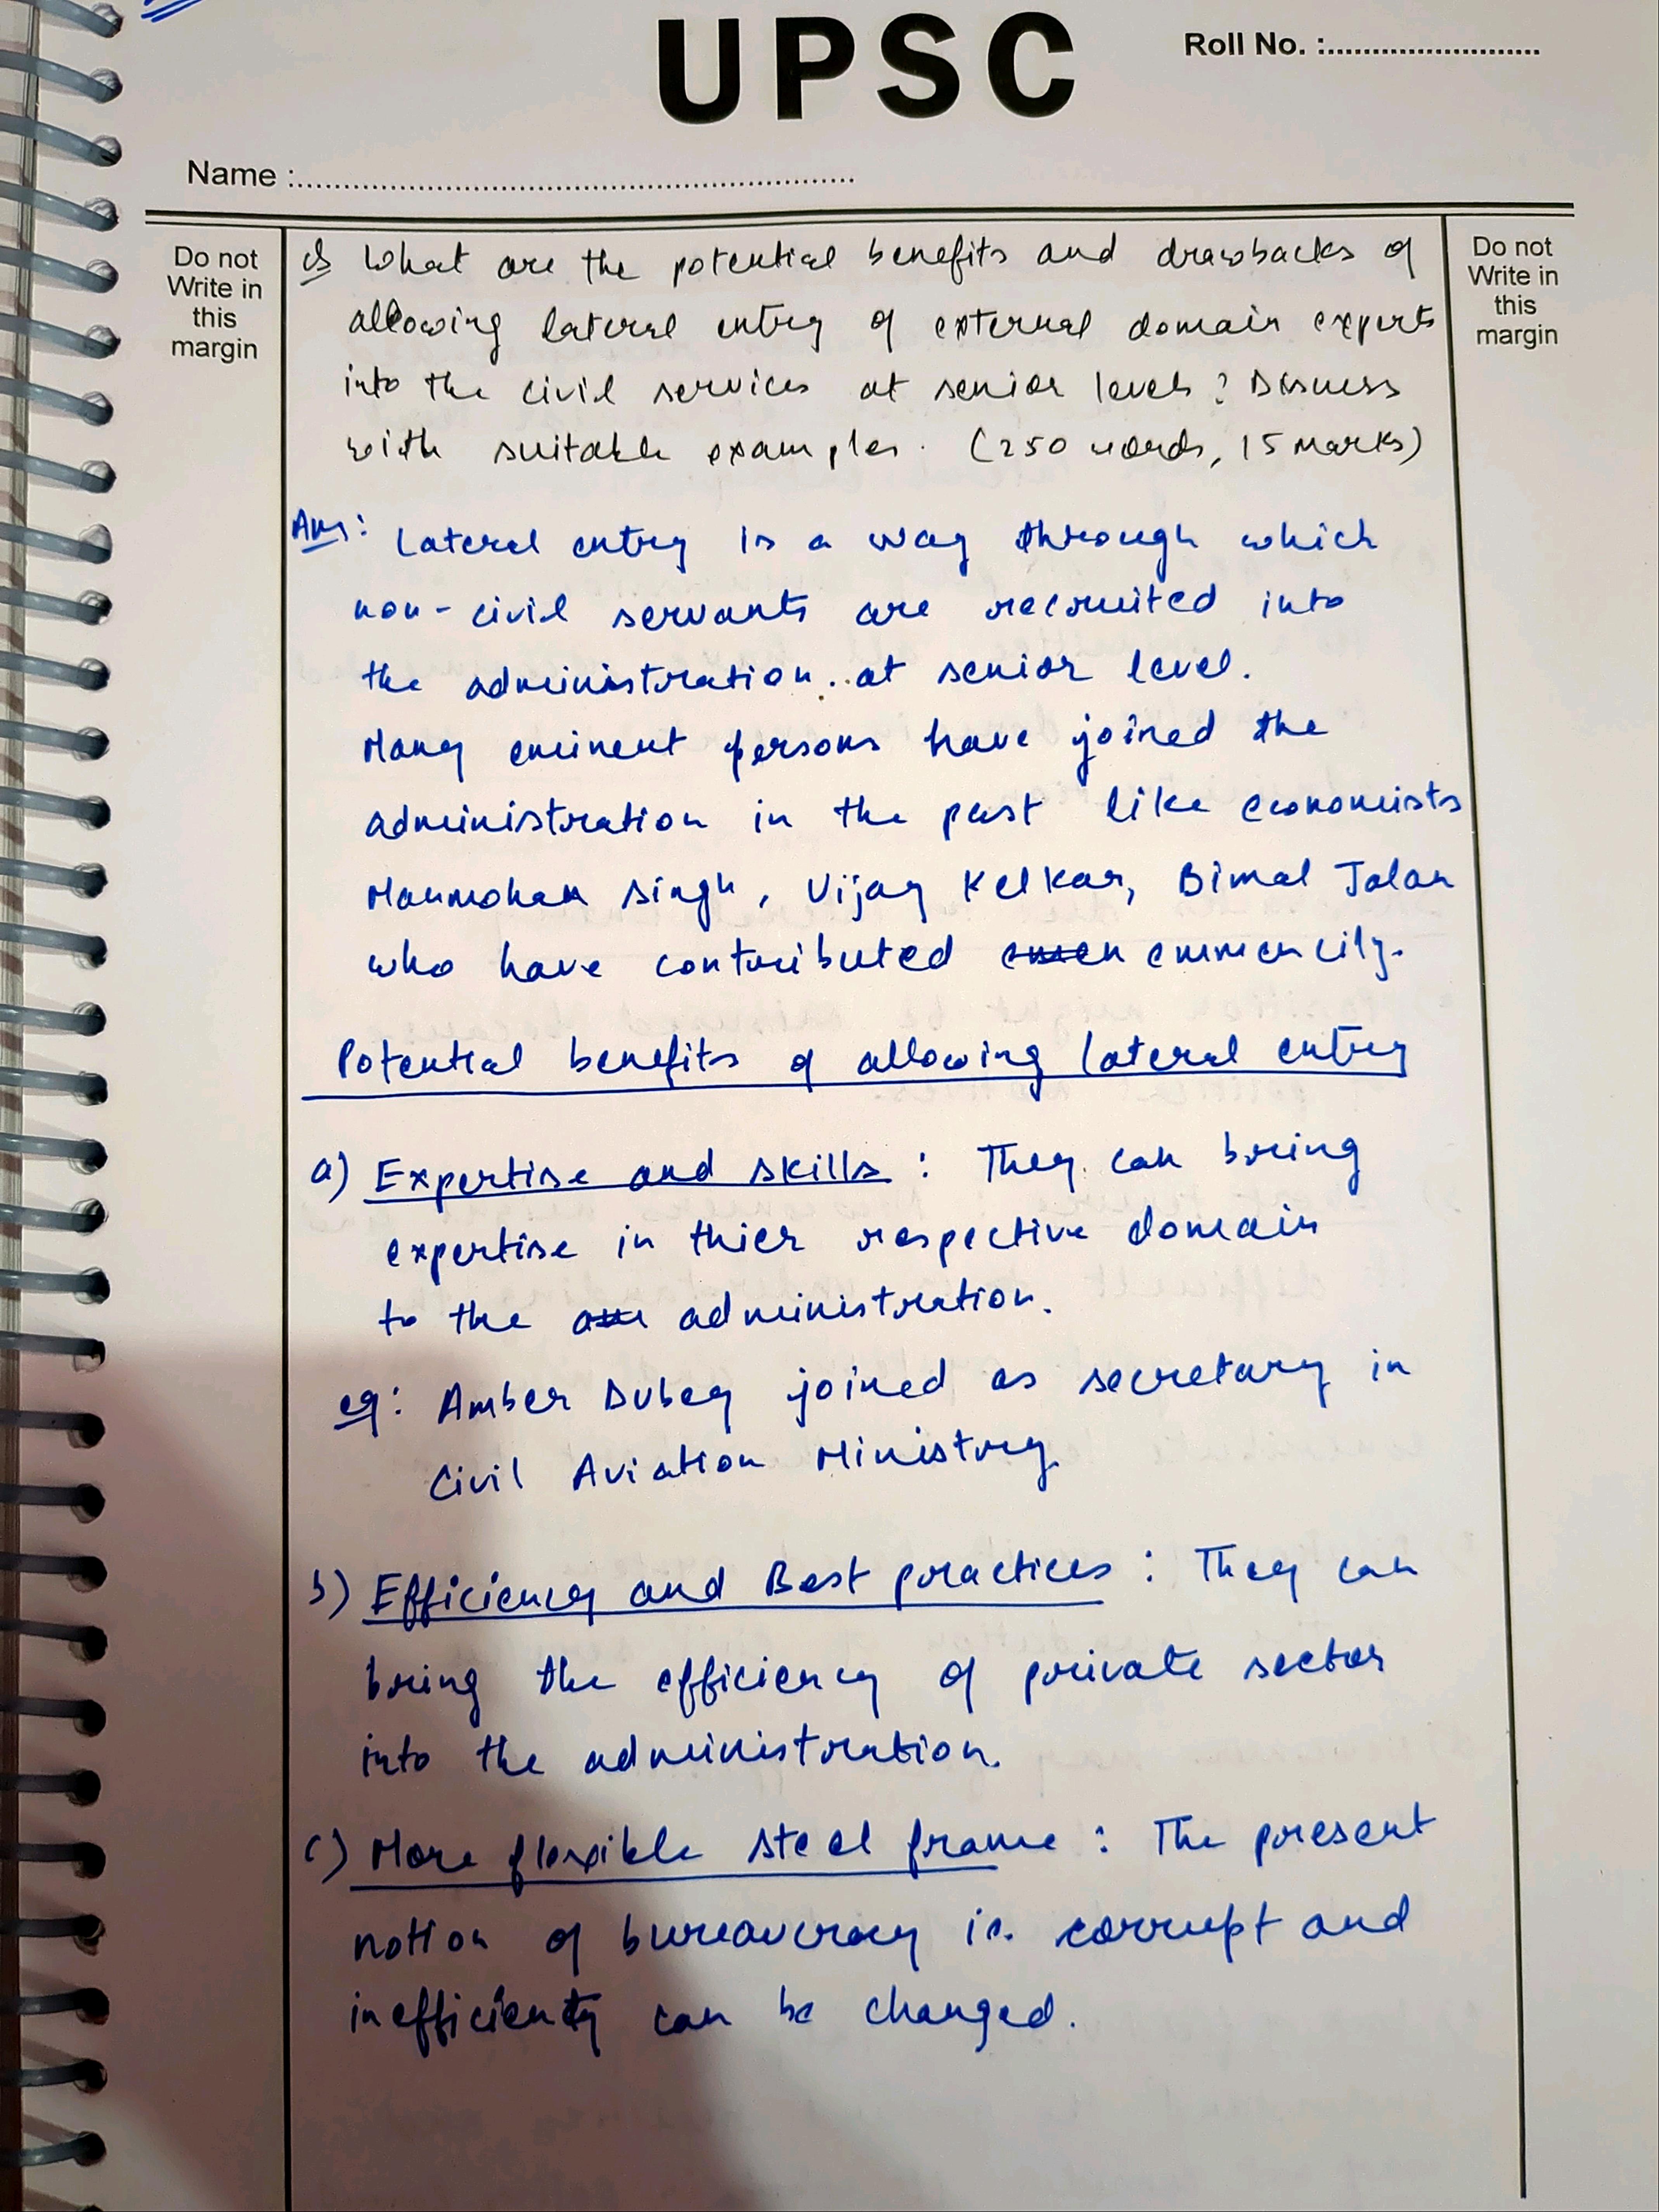 UPSC
Roll No. :........................
Name :................................................................
Do not
Write in
this
margin
Do not
Write in
this
margin
Q What are the potential benefits and drawbacks of
allowing lateral entry of external domain experts
into the civil services at senior levels? Discuss
with suitable examples. (250 words, 15 Marks)
Ans: Lateral entry is a way through which
non-civil servants are recruited into
the administration. at senior level.
Many eminent persons have joined the
administration in the past like economists
Manmohan Singh, Vijay Kelkar, Bimal Jalan
who have contributed emmencily.
Potential benefits of allowing lateral entry
a) Expertise and skills : They can bring
expertise in thier respective domain
to the administration.
eg: Amber Dubey joined as secretary in
Civil Aviation Ministry
b) Efficiency and Best practices : They can
bring the efficiency of private sector
into the administration.
c) More flexible steel frame : The present
notion of bureaucracy i.e. corrupt and
inefficienty can be changed.